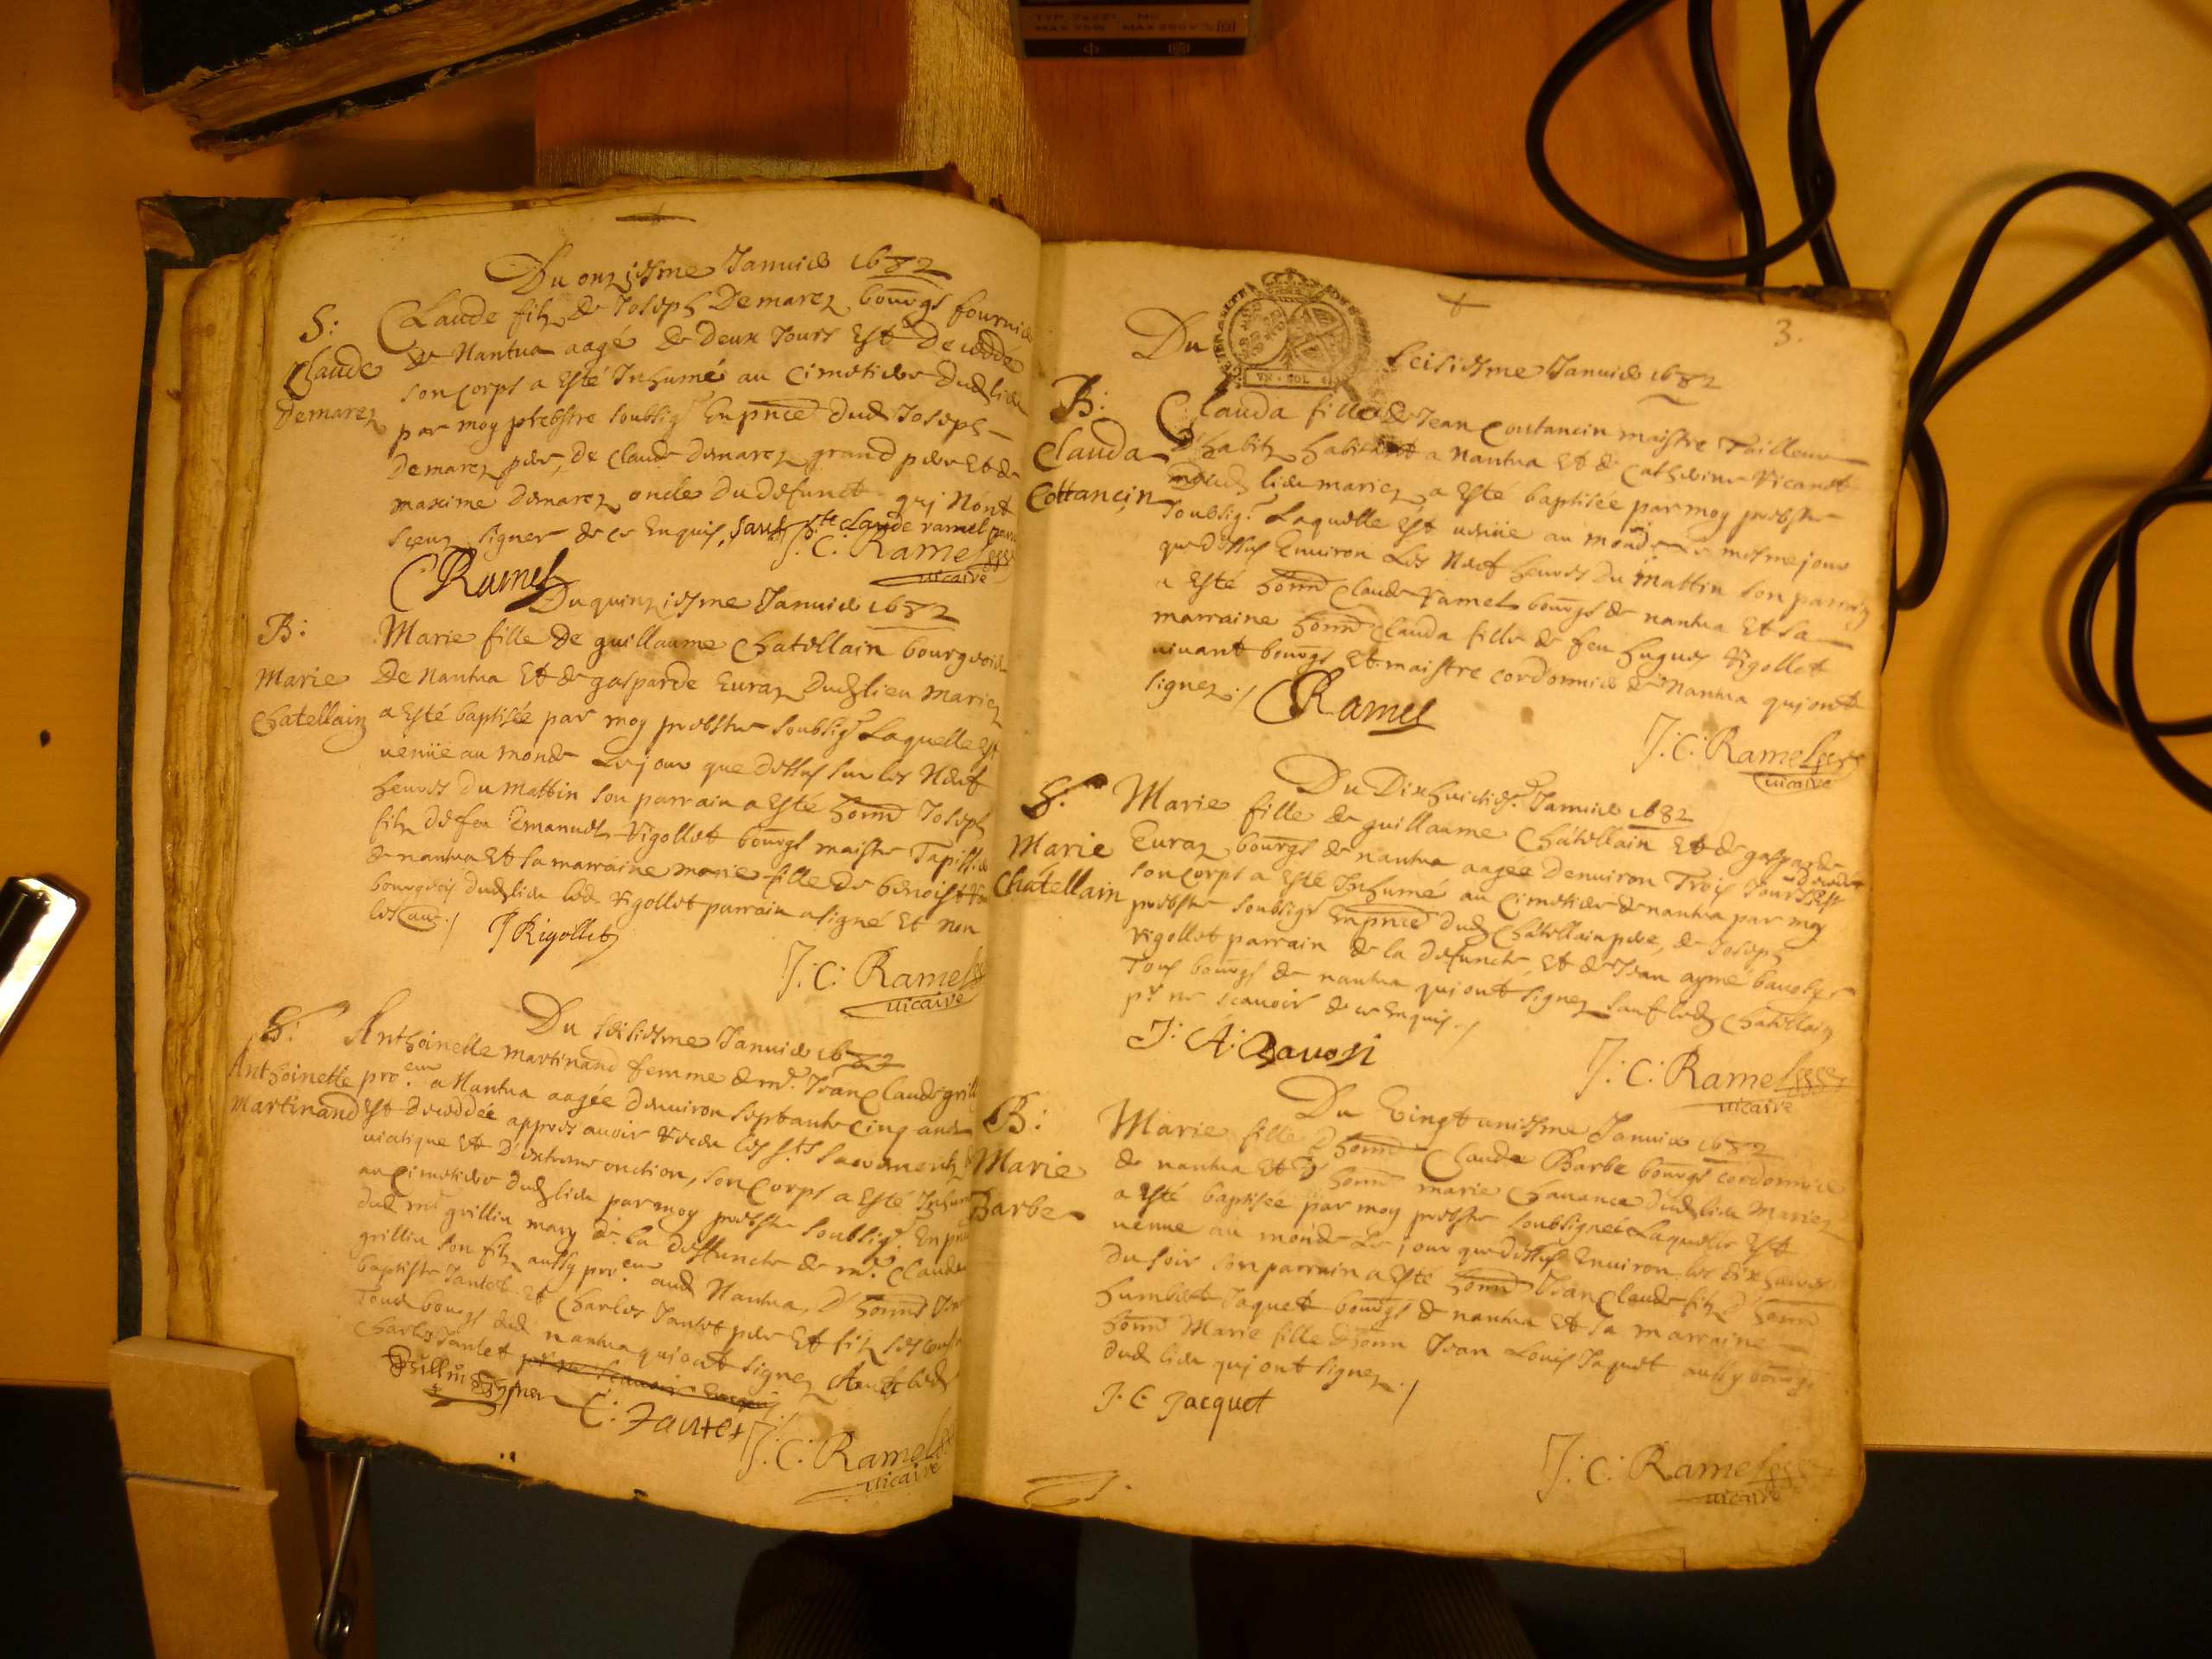 Du onziesme Januier 1682
S:
Claude
Demarez
Claude filz de Joseph Demarez bourgs fournier
de Nantua aagé de deux Jours Est Decedde
son corps a Esté Inhumé au Cimetiere dud lieu
par moy prebstre soubsigé En pnce dud Joseph
Demarez pere, De Claude Demarez grand pere Et de
maxime Demarez oncle du defunct qui Nont
sceuz signer de ce Enquis, sauf Claude ramel
CRamel
J: C: Ramel
uicaire
Du quinziesme Januier 1682
B:
Marie
Chatellain
Marie fille De guillaume Chatellain bourgeois
De Nantua Et de gasparde Euraz dud lieu Mariez
a Esté baptisée par moy prebstre soubsigé Laquelle Est
uenüe au monde Le jour que dessus sur les Neuf
heures du Mattin son parrain a Esté honn Joseph
filz de feu Emanuel Rigollet bourgs maistre Tapissier
de nantua Et sa marraine marie fille de benoist
bourgeois dud lieu led Rigollet parrain a signé Et non
les au. /
J Rigollet
J: C: Ramel
uicaire
Du seisiesme Januier 1682
S:
Anthoinette
Martinand
Anthoinette martinand femme de mr. Jean Claude grilliu
pro.eur a Nantua aagée denuiron septante Cinq ans
Est decedée appres auoir Receu les sts sacrementz
uiatique Et D'extreme onction, son Corps a Esté Inhumé
au Cimetiere dud lieu par moy prebstre soubsigé En pnce
dud mr grilliu mary de la deffuncte de mr. Claude
grilliu son filz aussy pro.eur aud Nantua, D' honns Jean
baptiste Jantet Et Charles Jantet pere Et filz
Tous bourgs dud nantua qui ont signez
Charles Jantet
Grilliu
C: Jantet
J: C: Ramel
uicaire
3.
Du seisiesme Januier 1682
VN · SOL
B:
Clauda
Cottancin
Clauda fille de Jean Coutancin maistre Tailleur
D'habitz habitant a Nantua Et de Catherine Vicandet
dud lieu mariez a Esté baptisée par moy prebstre
soubsig. Laquelle Est uenüe au monde mesme jour
que dessus Enuiron Les Neuf heures Du Mattin son parrain
a Esté honn Claude Ramel bourgs de nantua Et sa
marraine honn Clauda fille de feu hugues Rigollet
uiuant bourgs Et maistre cordonnier de Nantua qui ont
signez. /
CRamel
J: C: Ramel
uicaire
Du Dixhuictiesme Januier 1682
S:
Marie
Chatellain
Marie fille de guillaume Chatellain Et de gasparde
Euraz bourgs de nantua aagée Denuiron Trois Jours Est decedée
son corps a Esté Inhumé au Cimetiere de nantua par moy
prebstre soubsigé En pnce dud Chatellain pere, de Joseph
Rigollet parrain de la defuncte, Et de Jean aymé bauoz
Tous bourgs de nantua qui ont signez sauf led Chatellain
pr ne scauoir de ce Enquis. /
J: A: Bauoz
J: C: Ramel
uicaire
Du Vingt unisme Januier 1682
B:
Marie
Barbe
Marie fille D honn Claude Barbe bourgs cordonnier
de nantua Et D honn marie Chanance dud lieu Mariez
a Esté baptisée par moy prebstre soubsigné Laquelle Est
uenue au monde Le jour que dessus Enuiron les dix heures
du soir son parrain a Esté honn Jean Claude filz D honn
humbert Jaquet bourgs de nantua Et sa marraine
honn Marie fille D honn Jean Louis Jaquet aussy bourgs
dud lieu qui ont signez. /
J. C Jacquet
J: C: Ramel
uicaire